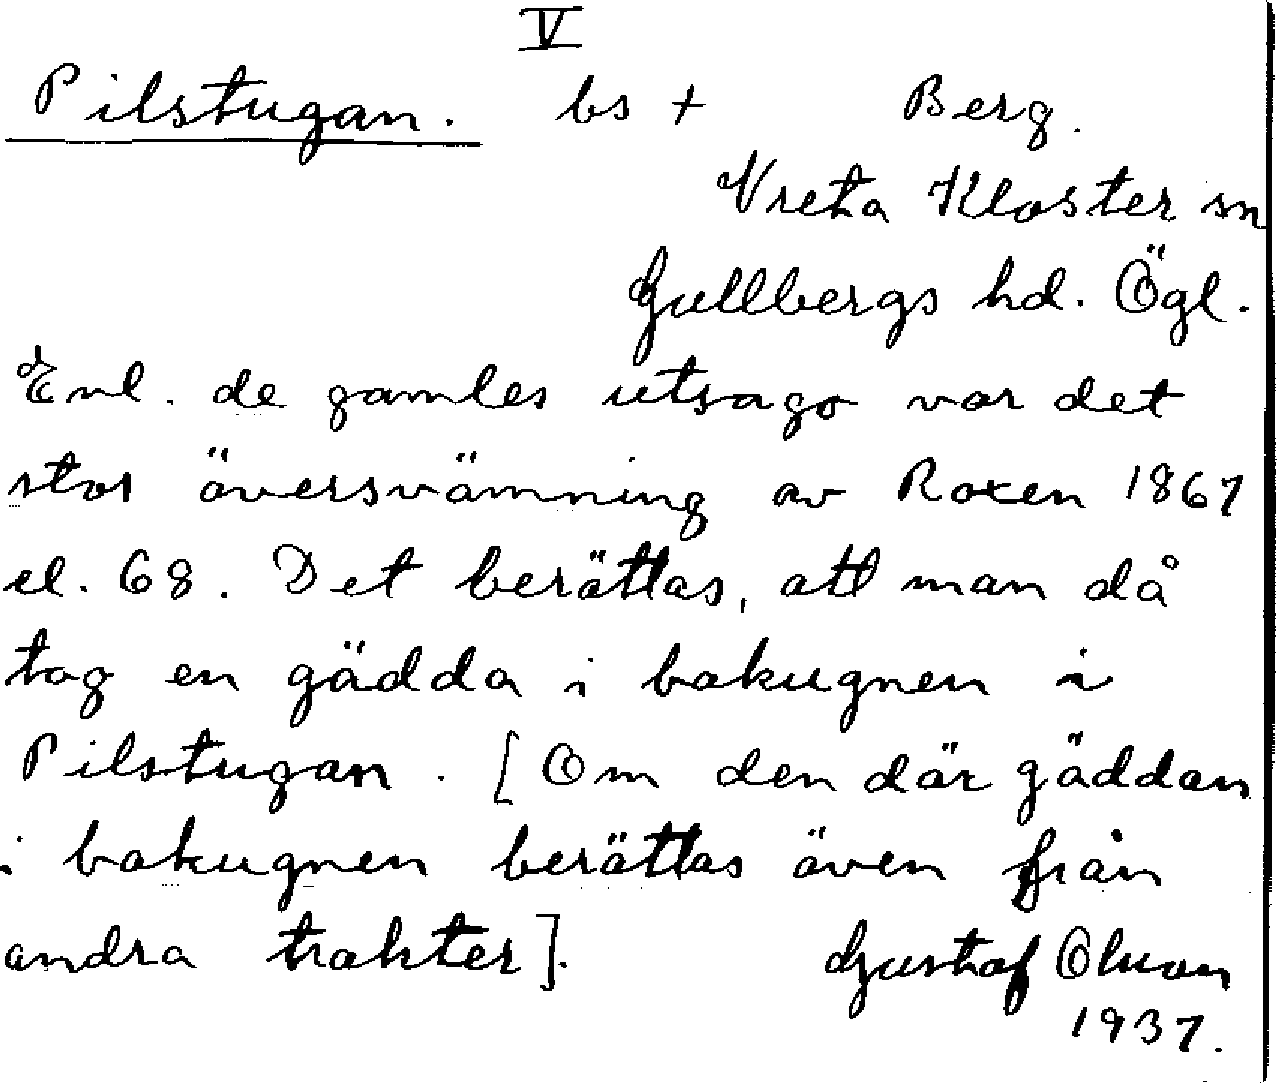 V
Pilstugan. bs + Berg.
Vreta Kloster sn
Gullbergs hd. Ögl.
Enl. de gamles utsago var det
stor översvämning av Roxen 1867
el. 68. Det berättas, att man då
tog en gädda i bakugnen i
Pilstugan. [Om den där gäddan
i bakugnen berättas även från
andra trakter].
Gustaf Olsson
1937.